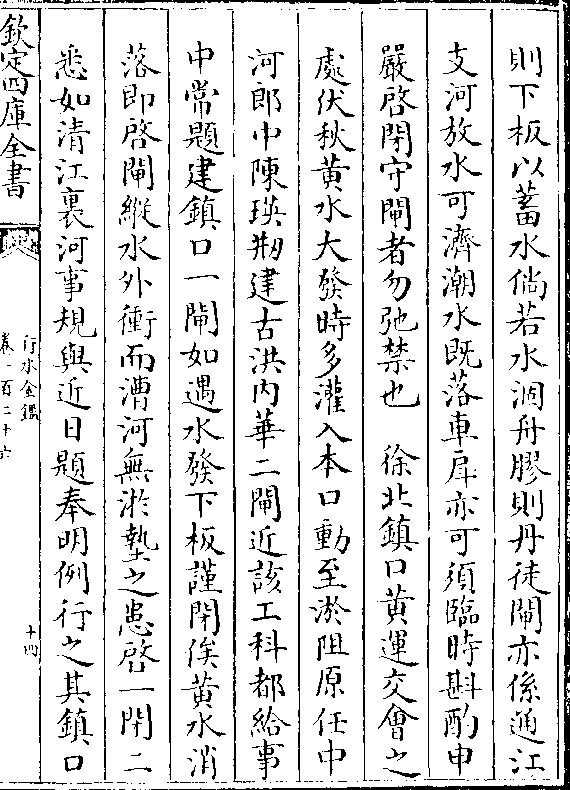 則下板以蓄水倘若水涸舟膠則丹徒閘亦係通江
支河放水可濟潮水既落車戽亦可須臨時斟酌申
嚴啓閉守閘者勿弛禁也　徐北鎮口黄運交會之
處伏秋黄水大發時多灌入本口動至淤阻原任中
河郎中陳瑛剏建古洪内華二閘近該工科都給事
中常題建鎮口一閘如遇水發下板謹閉俟黄水消
落即啓閘縱水外衝而漕河無淤墊之患啓一閉二
悉如清江裏河事規與近日題奉明例行之其鎮口
欽定四庫全書
行水金鑑
卷一百二十六
十四